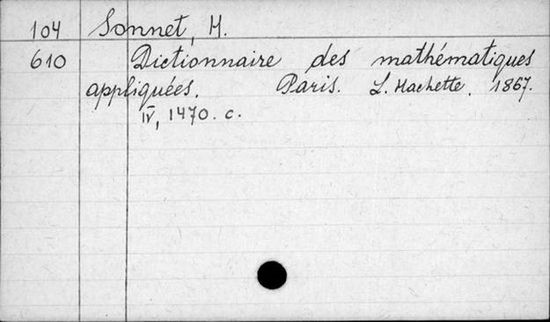 104 Sonnet, H.
610 Dictionnaire des mathématiques
appliquées. Paris. L. Hachette. 1867.
IV, 1470. c.